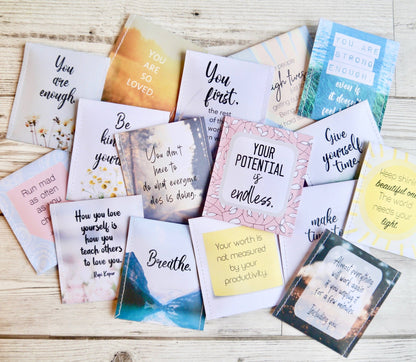 You
are
enough
YOU
ARE SO
LOVED
You
first.
the rest
of the
YOU ARE
STRONG
ENOUGH
even if
Be
kind
You don't
have
to do
what everyone
else is doing.
YOUR
POTENTIAL
is
endless.
Give
yourself
time.
Keep shining
beautiful one.
The world
needs your
light.
Run mad
as often
How you love
yourself is
how you
teach others
to love you.
Rupi Kaur
Breathe.
Your worth is
not measured
by your
productivity.
make
time
Almost everything
will work again
if you unplug it
for a few minutes.
Including you.